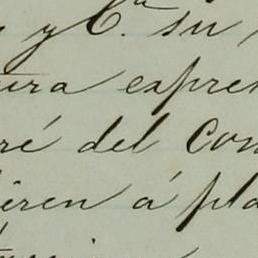 y C.ª su
ura expre
ré del Con
ieren á pla